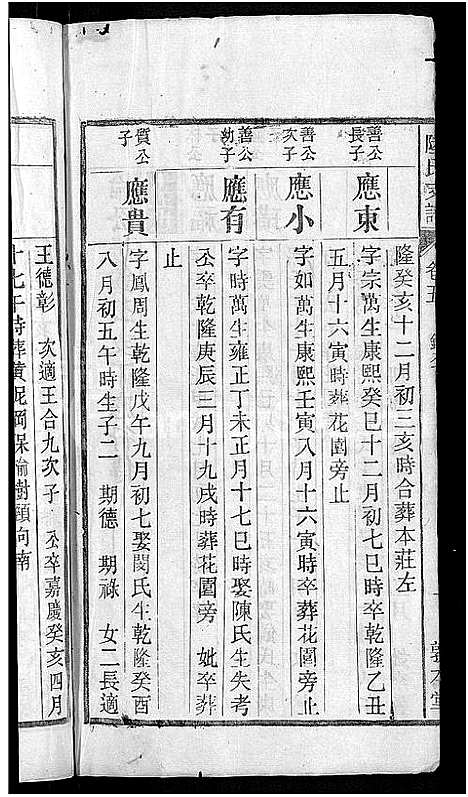 卷五
隆癸亥十二月初三亥時合葬本莊左
善公長子
應東
字宗萬生康熙癸巳十二月初七巳時卒乾隆乙丑
五月十六寅時葬花園旁止
善公次子
應小
字如萬生康熙壬寅八月十六寅時卒葬花園旁止
善公幼子
應有
字時萬生雍正丁未正月十七巳時娶陳氏生失考
公卒乾隆庚辰三月十九戌時葬花園旁 妣卒葬
止
質公子
應貴
字鳳周生乾隆戊午九月初七娶閔氏生乾隆癸酉
八月初五午時生子二 期德 期祿 女二長適
王德彰 次適王合九次子 公卒嘉慶癸亥四月
十七午時葬黄泥岡保榆樹頭向南